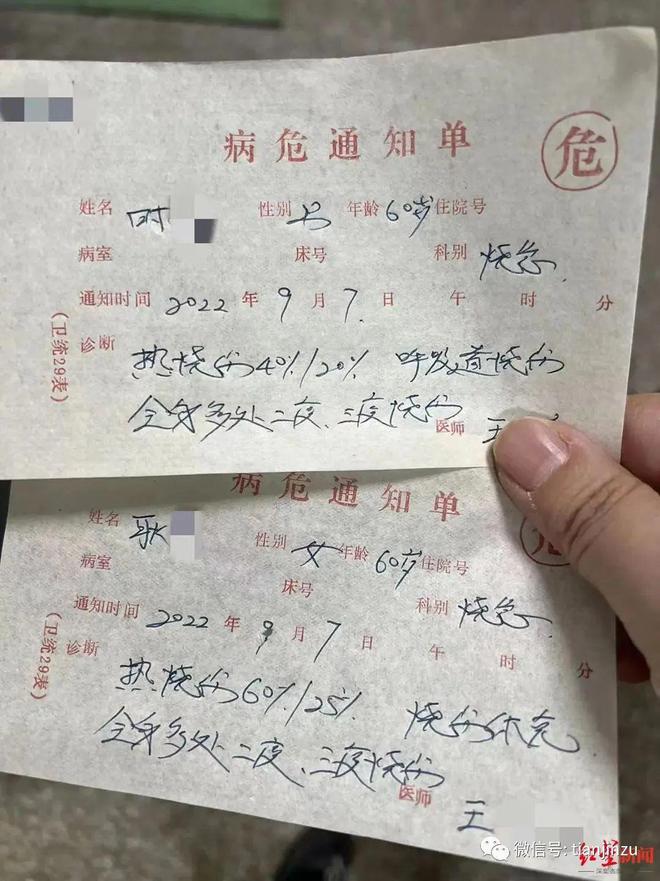 病危通知单
危
姓名 时 性别 男 年龄 60岁 住院号
病室 床号 科别 烧急
通知时间 2022 年 9 月 7 日 午 时 分
诊断 热烧伤40%/20% 呼吸道烧伤
全身多处二度、三度烧伤
医师 王
(卫统29表)
病危通知单
危
姓名 耿 性别 女 年龄 60岁 住院号
病室 床号 科别 烧急
通知时间 2022 年 9 月 7 日 午 时 分
诊断 热烧伤60%/25% 烧伤休克
全身多处二度、三度烧伤
医师 王
(卫统29表)
微信号: tianjinzu
红星新闻